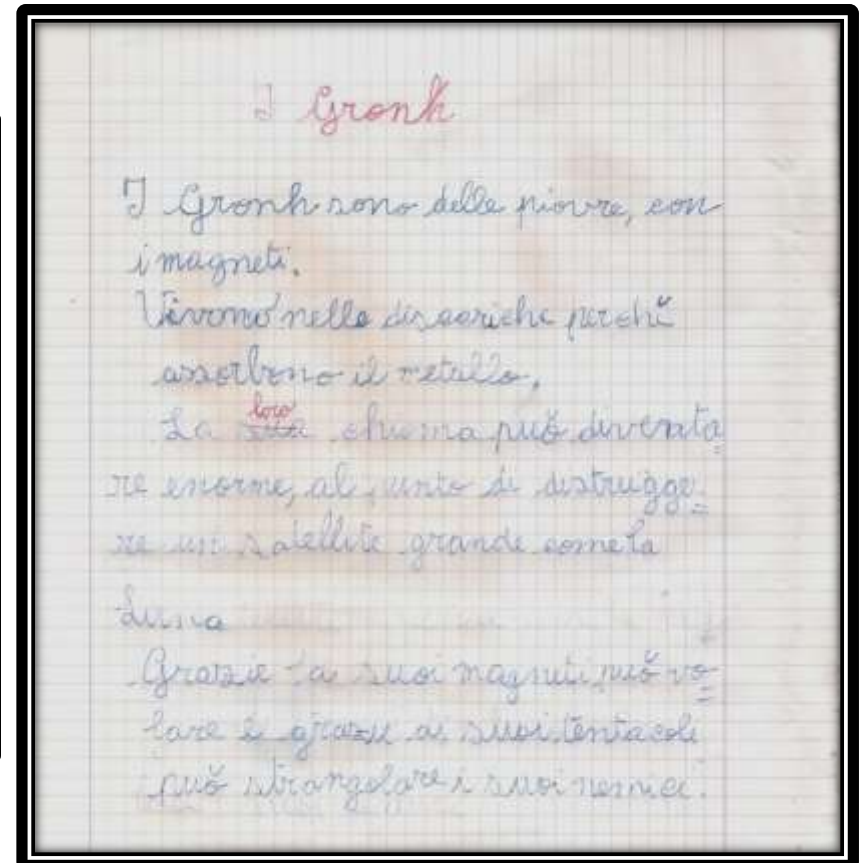 I Gronh
I Gronh sono delle piovre, con
i magneti.
Vivono nelle discariche perchè
assorbono il metallo.
La sua loro chioma può diventa
re enorme, al punto di distrugge
re un satellite grande come la
Luna
Grazie a suoi magneti può vo
lare e grazie ai suoi tentacoli
può strangolare i suoi nemici.